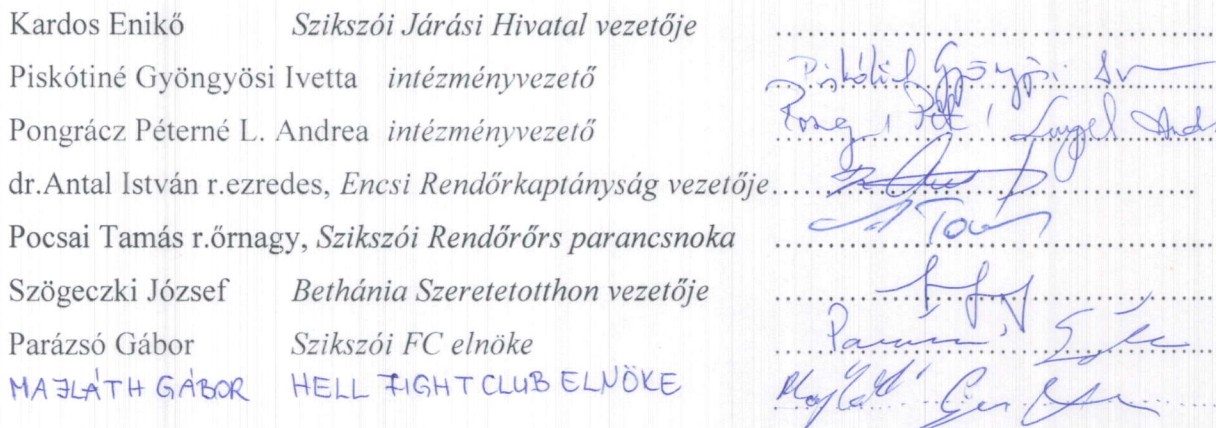 Kardos Enikő Szikszói Járási Hivatal vezetője ........................................
Piskótiné Gyöngyösi Ivetta intézményvezető Piskótiné Gyöngyösi
Pongrácz Péterné L. Andrea intézményvezető
dr.Antal István r.ezredes, Encsi Rendőrkaptányság vezetője........................................
Pocsai Tamás r.őrnagy, Szikszói Rendőrőrs parancsnoka ........................................
Szögeczki József Bethánia Szeretetotthon vezetője ........................................
Parázsó Gábor Szikszói FC elnöke ........................................
MAJLÁTH GÁBOR HELL FIGHT CLUB ELNÖKE